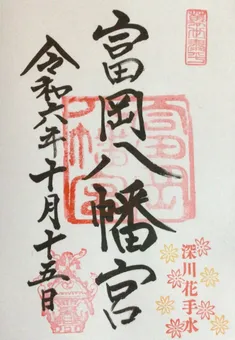 富岡八幡宮
令和六年十月十五日
深川花手水